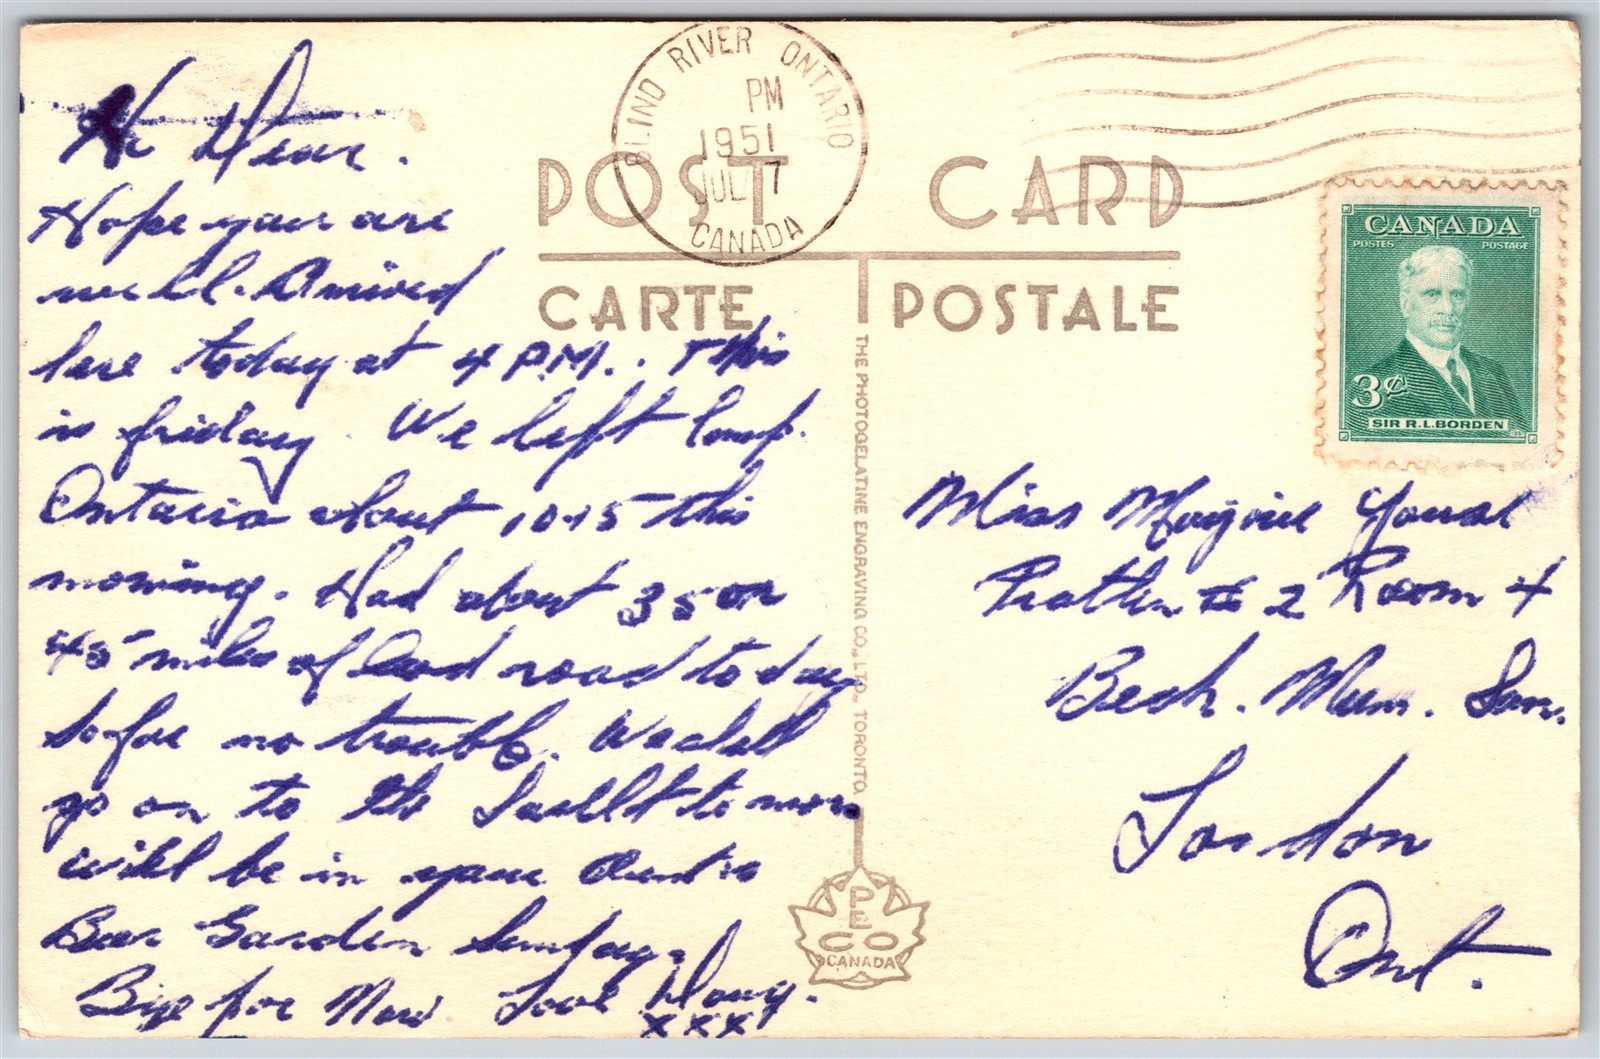 BLIND RIVER ONTARIO
PM
1951
JUL 7
CANADA
POST CARD
CARTE POSTALE
CANADA
POSTES POSTAGE
3¢
SIR R.L.BORDEN
Hi Dear.
Hope your are
well. Arrived
here today at 4 P.M.. This
is friday. We left
Ontario about 10.15 this
morning. Had about 35 or
45 miles of bad road today
so far no trouble. We shall
go on to the to morr
will be in your
Bear Garden Sunday.
Bye for Now. Love
xxx
THE PHOTOGELATINE ENGRAVING CO., LTD., TORONTO.
PECO
CANADA
Miss Marjorie
# 2 Room 4
Beck. Mem. San.
London
Ont.